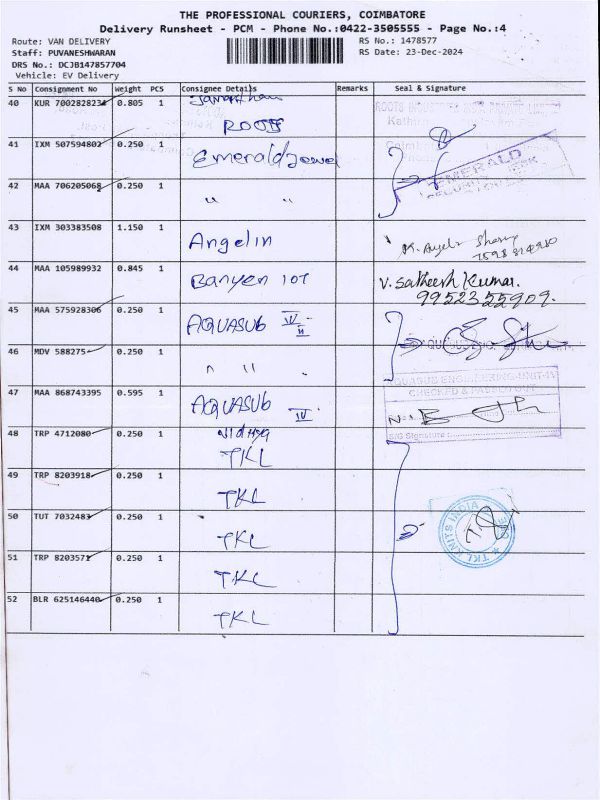 THE PROFESSIONAL COURIERS, COIMBATORE
Delivery Runsheet - PCM - Phone No.:0422-3505555 - Page No.:4
Route: VAN DELIVERY RS No.: 1478577
Staff: PUVANESHWARAN RS Date: 23-Dec-2024
DRS No.: DCJB147857704
Vehicle: EV Delivery
S No Consignment No Weight PCS Consignee Details Remarks Seal & Signature
40 KUR 700282823 0.805 1
ROOTS
41 IXM 507594802 0.250 1 Emerald Jewel
EMERALD
42 MAA 706205068 0.250 1 " "
43 IXM 303383508 1.150 1 Angelin
44 MAA 105989932 0.845 1 Banyen IOT V. Satheesh Kumar.
9952355909.
45 MAA 575928306 0.250 1 AQUASUB IV
II
46 MDV 588275 0.250 1 " "
47 MAA 868743395 0.595 1 AQUASUB IV
CHECKED &
48 TRP 4712080 0.250 1 Vidhya
TKL
49 TRP 8203918 0.250 1 TKL
50 TUT 7032483 0.250 1 TKL
TKL KNITS INDIA
51 TRP 8203571 0.250 1 TKL
52 BLR 625146440 0.250 1 TKL